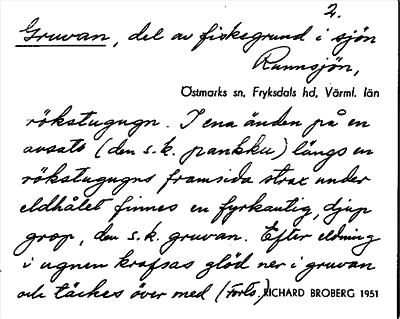 2.
Gruvan, del av fiskegrund i sjön
Runnsjön,
Östmarks sn, Fryksdals hd, Värml. län
rökstugugn. I ena änden på en
avsats (den s.k. pankku) längs en
rökstugugns framsida strax under
eldhålet finnes en fyrkantig, djup
grop, den s.k. gruvan. Efter eldning
i ugnen krafsas glöd ner i gruvan
och täckes över med (Forts.) RICHARD BROBERG 1951